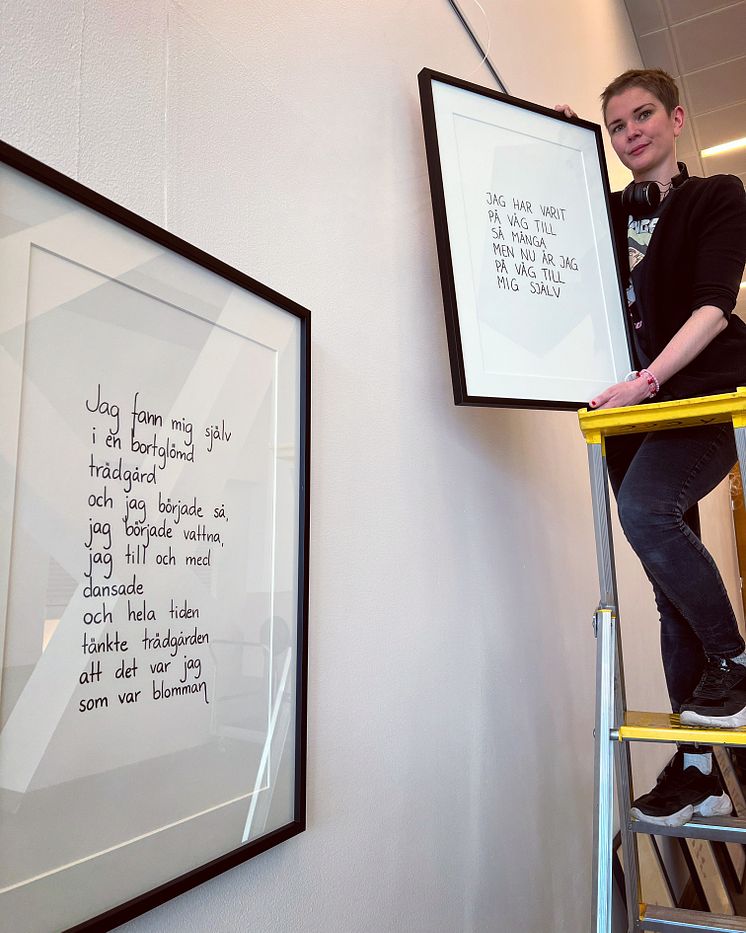 Jag fann mig själv
i en bortglömd
trädgård
och jag började så,
jag började vattna,
jag till och med
dansade
och hela tiden
tänkte trädgården
att det var jag
som var blomman
JAG HAR VARIT
PÅ VÄG TILL
SÅ MÅNGA
MEN NU ÄR JAG
PÅ VÄG TILL
MIG SJÄLV